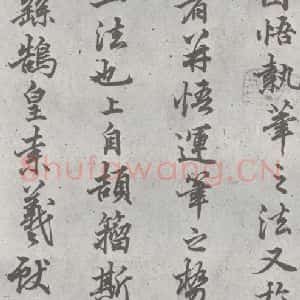 悟執筆之法又
者并悟運筆之
法也上自頡籀斯
鵠皇李羲獻
Shufawang.CN